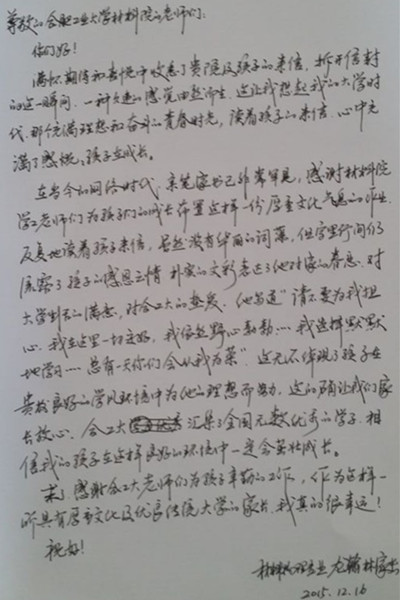 尊敬的合肥工业大学材料院的老师们:
你们好!
满怀期待和喜悦中收悉了贵院及孩子的来信,拆开信封
的这一瞬间,一种久违的感觉由然而生,这让我想起我的大学时
代,那个充满理想和奋斗的青春时光,读着孩子的来信,心中充
满了感慨:孩子在成长。
在当今的网络时代,亲笔家书已非常罕见,感谢材料院
学工老师们为孩子们的成长布置这样一份厚重文化气息的作业。
反复地读着孩子来信,虽然没有华丽的词藻,但字里行间仍
流露了孩子的感恩之情,朴实的文彩表达了他对家的眷恋,对
大学生活的满意,对合工大的热爱。他写道"请不要为我担
心,我在这里一切安好,我依然野心勃勃…我选择默默
地学习…总有一天你们会以我为荣"。这无不体现了孩子在
贵校良好的学风环境中为他的理想而努力,这的确让我们家
长放心。合工大汇集了全国无数优秀的学子,相
信我的孩子在这样良好的环境中一定会茁壮成长。
感谢合工大老师们为孩子辛勤的工作,作为这样一
所具有厚重文化及优良传统大学的家长,我真的很幸运!
祝好!
材料物理专业 家长
2015.12.16